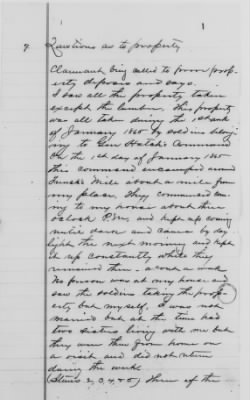 1
7. Questions as to property
Claimant being called to prove prop-
erty deposes and says.
I saw all the property taken
except the lumber. This property
was all taken during the 1st week
of January 1865 by soldiers belong-
ing to Gen Hatch's Command
On the 1st day of January 1865
this command encamped around
Mill about a mile from
my place. They commenced com-
ing to my house about three
oclock P.M. and kept up coming
until dark and came by day
light the next morning and kept
it up constantly while they
remained there - about a week
No person was at my house and
saw the soldiers taking the prop-
erty but my self. I was not
married but at the time had
two sisters living with me but
they were then gone from home on
a visit and did not return
during the week
(Items 2, 3, 4, & 5) Three of the